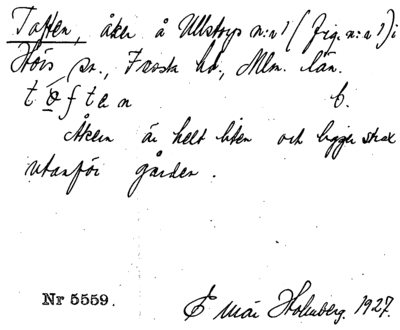 Toften, åker å Ullstorp n:r 1 (fig. n:r 1) i
Hörs sn., Frosta hd., Mlm. län.
t o f t e n b.
Åkern är helt liten och ligger strax
utanför gården.
Nr 5559. Holmberg. 1927.